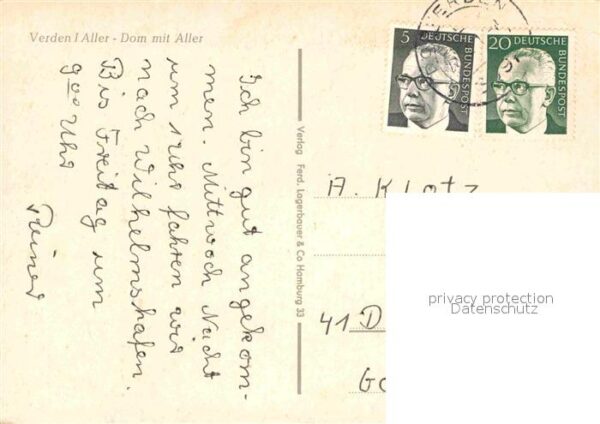 Verden / Aller - Dom mit Aller
Ich bin gut angekom-
men. Mittwoch Nacht
um 1 Uhr fahren wir
nach Wilhelmshafen.
Bis Freitag um
9⁰⁰ Uhr
Verlag Ferd. Lagerbauer & Co Hamburg 33
VERDEN
5
DEUTSCHE
BUNDESPOST
20
DEUTSCHE
BUNDESPOST
A. Klotz
41 D
privacy protection
Datenschutz